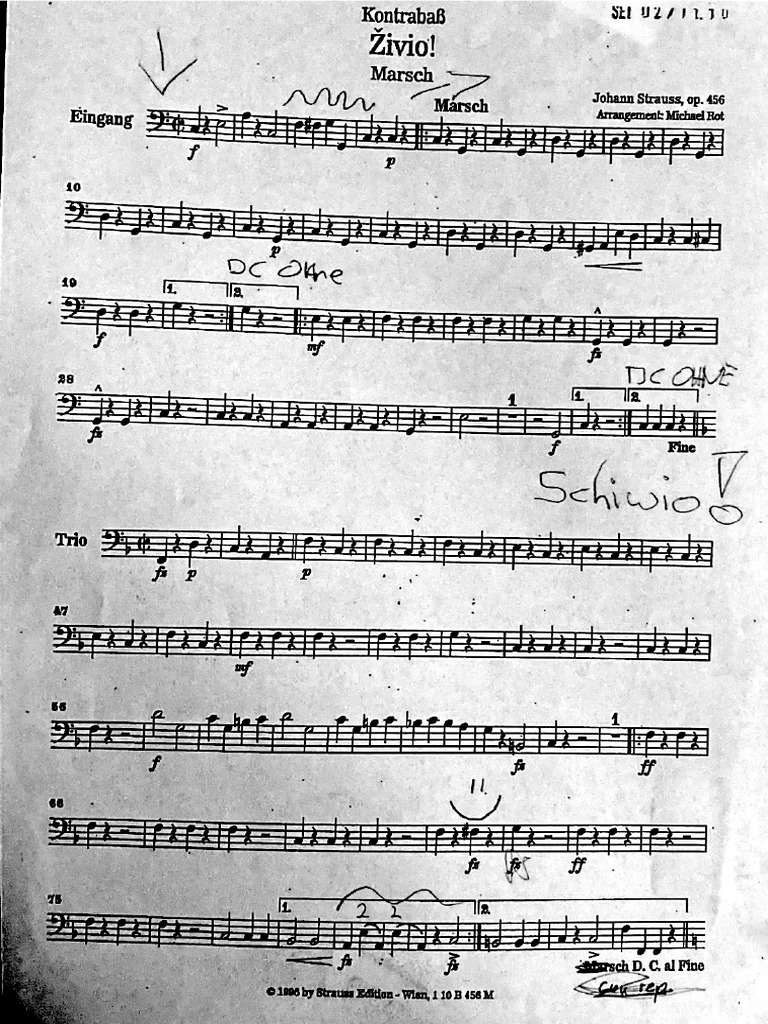 Kontrabaß
Živio!
Marsch
Johann Strauss, op. 456
Arrangement: Michael Rot
Eingang
Marsch
f
p
10
p
DC Ohne
19
1.
2.
f
mf
fz
28
DC OHNE
1
1.
2.
fz
f
Fine
Schiwio!
Trio
fz
p
p
47
mf
56
1
f
fz
ff
66
fz
fz
ff
75
1.
2
2
2.
fz
fz
Marsch D. C. al Fine
rep.
© 1996 by Strauss Edition - Wien, 1 10 B 456 M